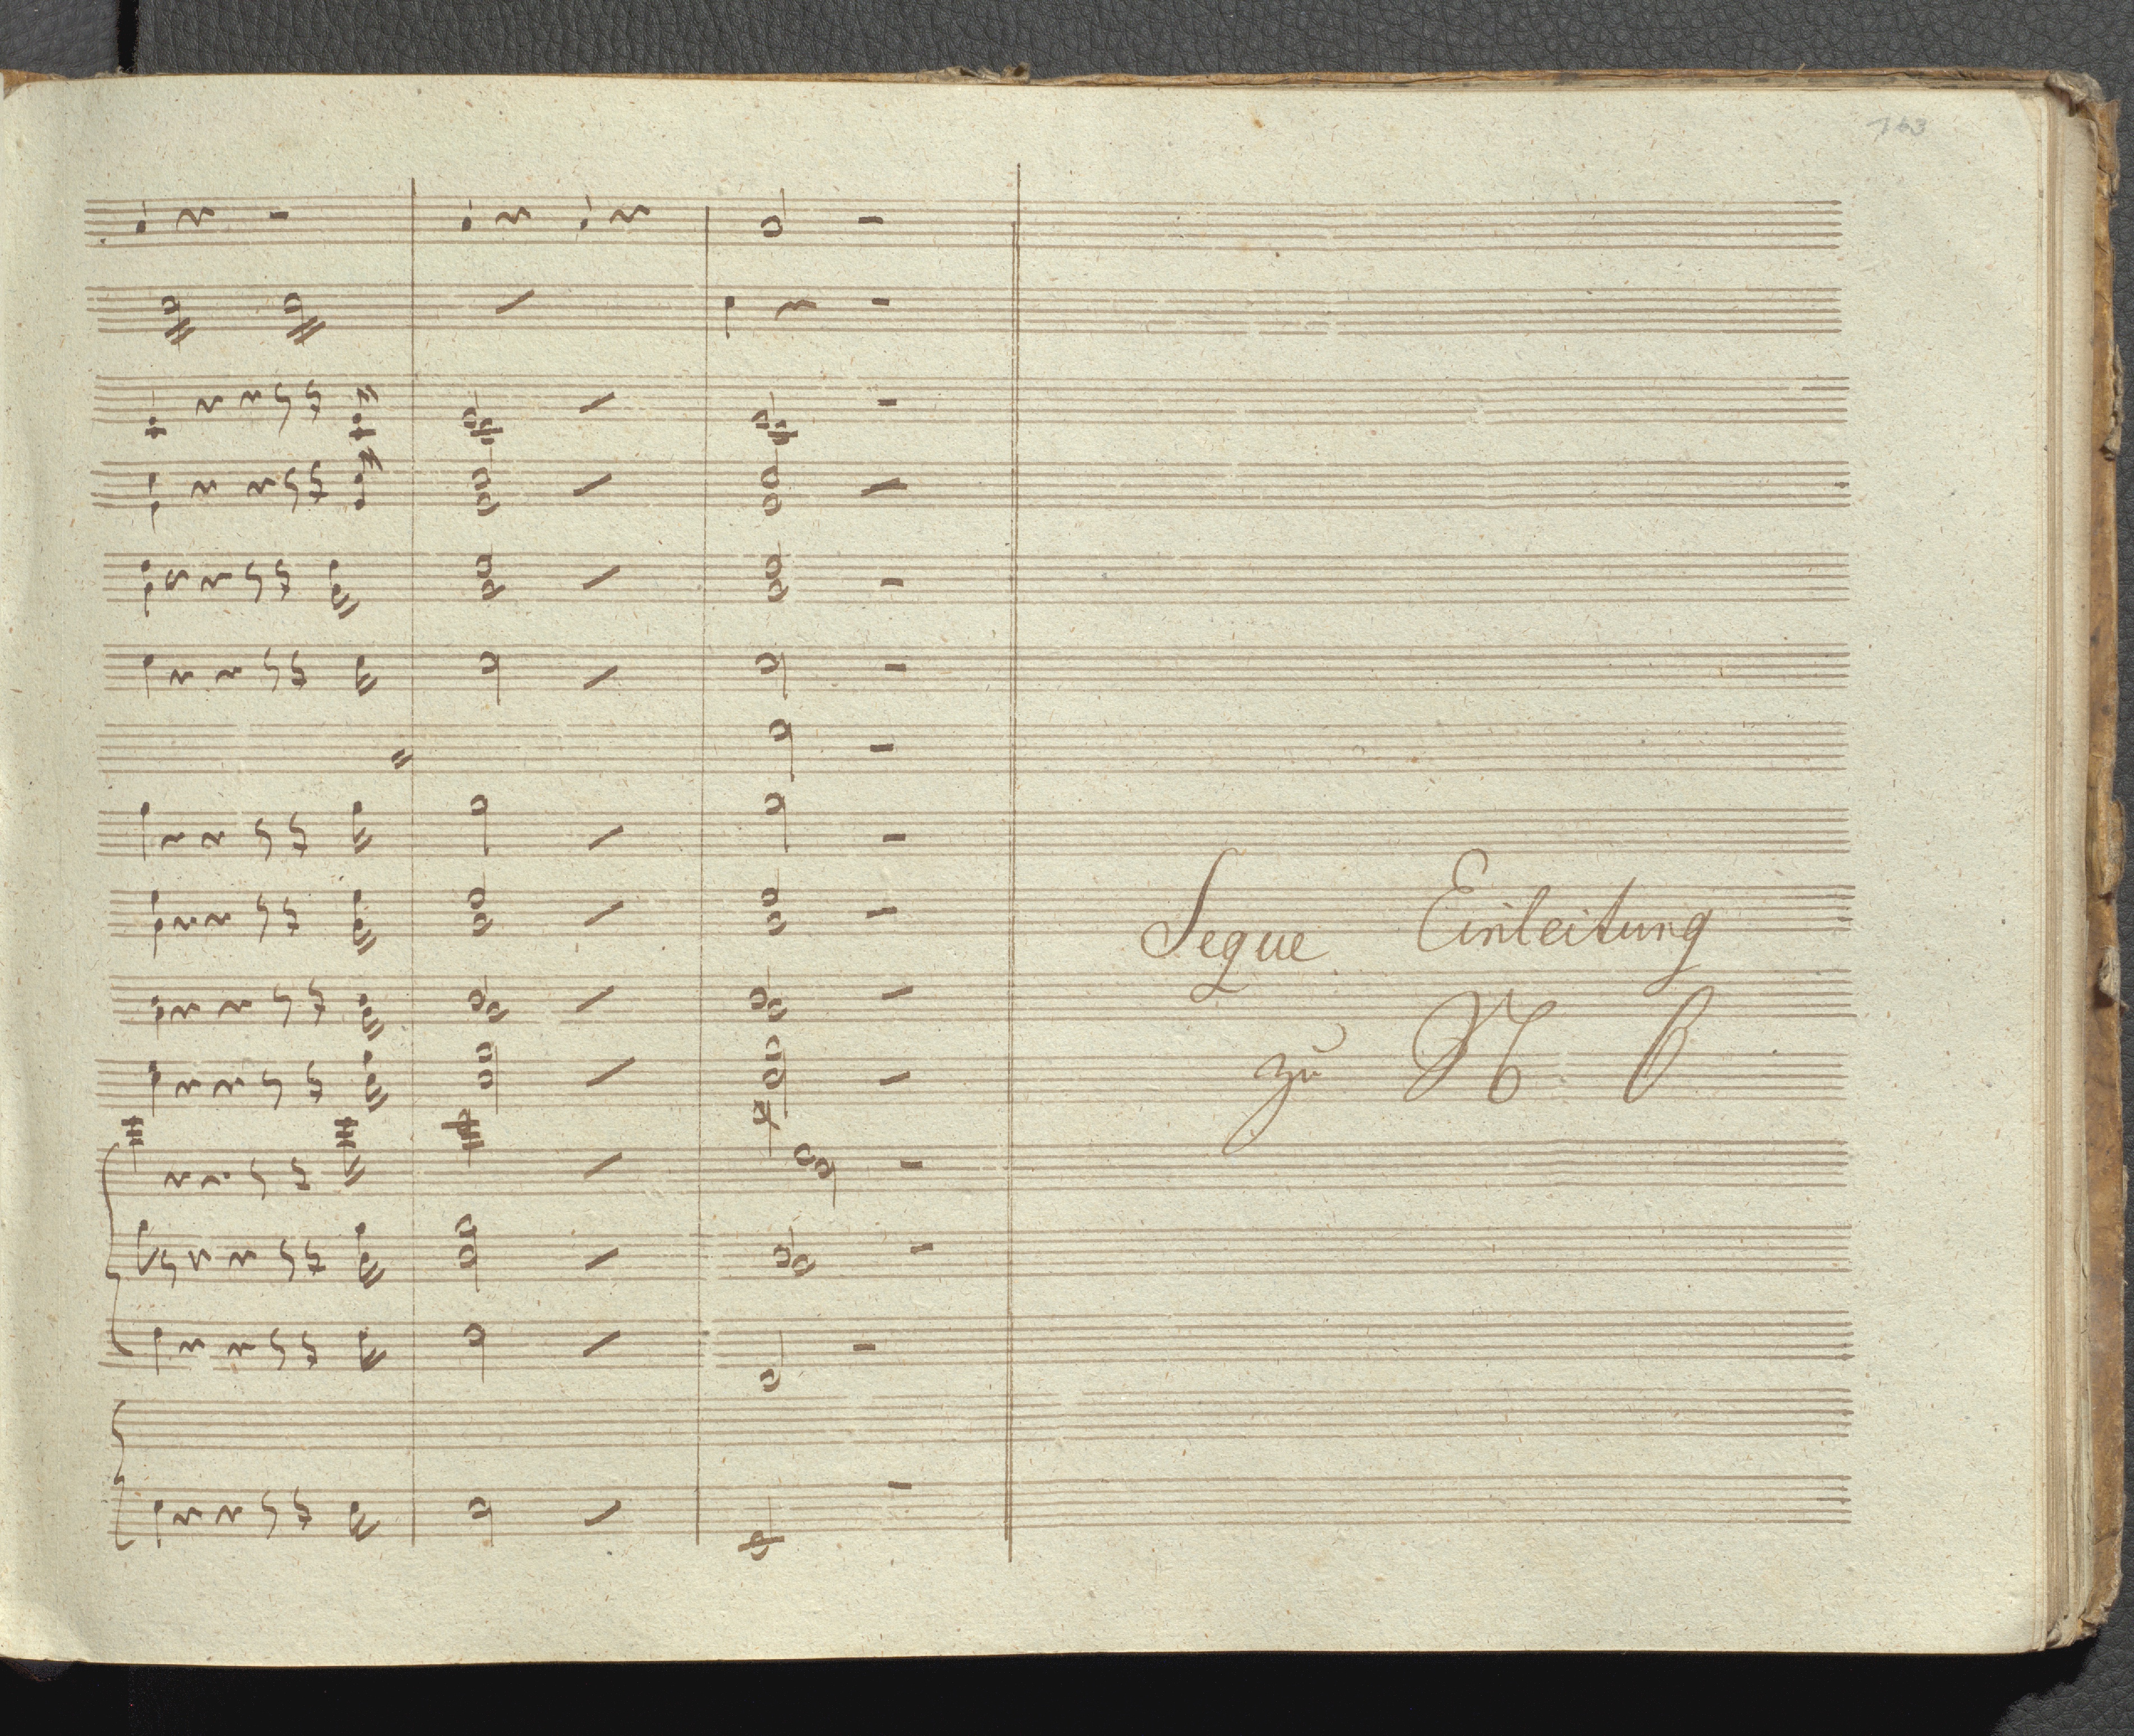 163
Segue Einleitung
zu